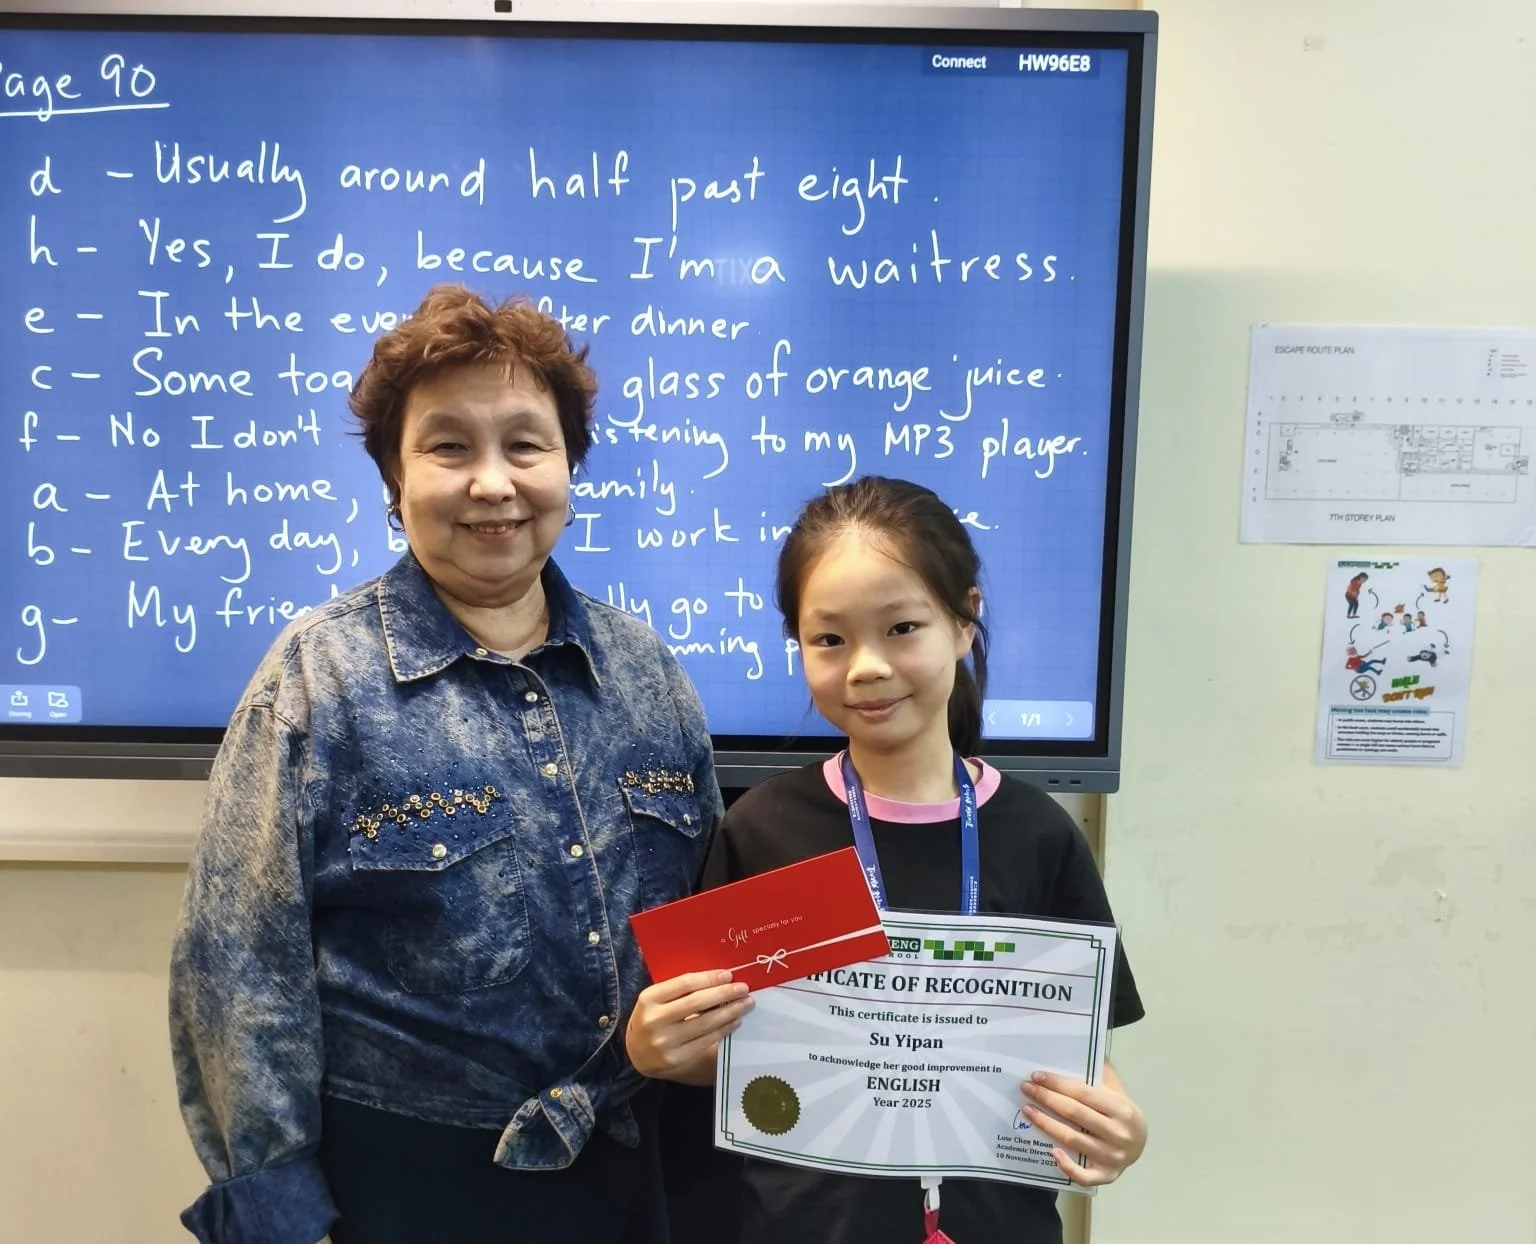 age 90
Connect HW96E8
d - Usually around half past eight.
h - Yes, I do, because I'm a waitress.
e - In the eve fter dinner
c - Some toa glass of orange juice.
f - No I don't istening to my MP3 player.
a - At home, amily.
b - Every day, b I work in e.
g- My frien lly go to
mming p
Sharing Open
1/1
ESCAPE ROUTE PLAN
7TH STOREY PLAN
WALK
DON'T RUN
Moving too fast may create risks
a Gift specially for you
ENG
HOOL
IFICATE OF RECOGNITION
This certificate is issued to
Su Yipan
to acknowledge her good improvement in
ENGLISH
Year 2025
Low Chee Moon
Academic Directo
10 November 2025